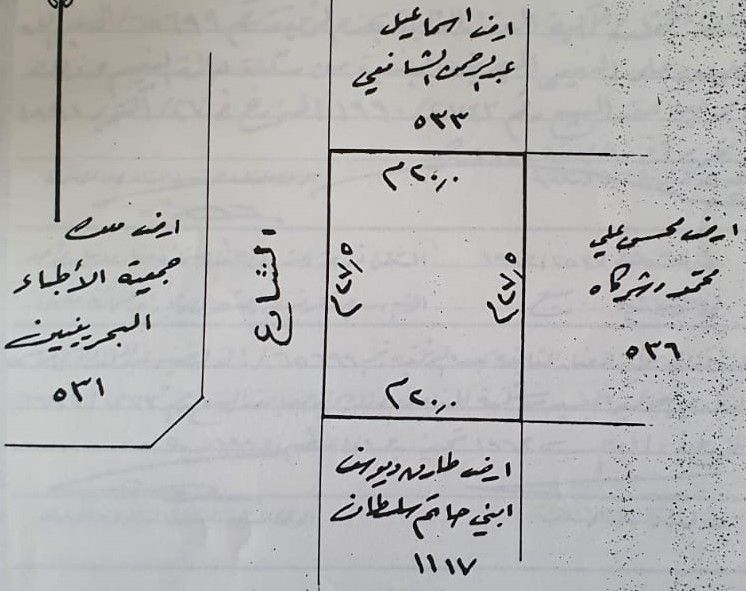 ارض اسماعيل
عبدالرحمن الشافعي
٥٣٣
٢٠,٠م
ارض محسن علي
محمد وشركاه
٥٣٦
٢٧,٥م
٢٧,٥م
الشارع
ارض ملك
جمعية الأطباء
البحرينيين
٥٣١
٢٠,٠م
ارض طارق ويوسف
ابني حاتم سلطان
١١١٧